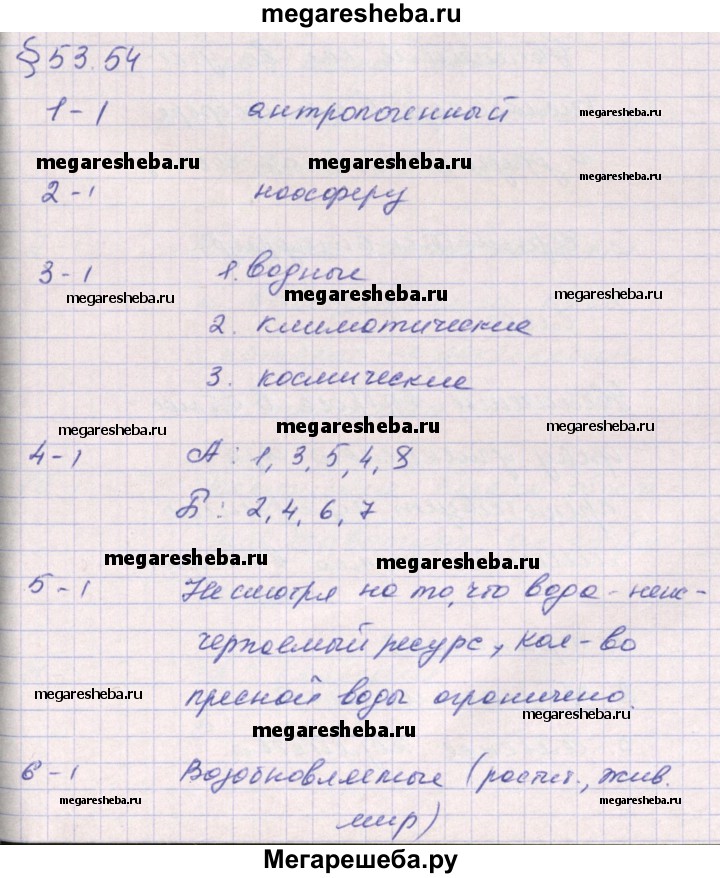 megaresheba.ru
§ 53.54
1-1 антропогенный megaresheba.ru
megaresheba.ru megaresheba.ru megaresheba.ru
2-1 ноосферу
3-1 1. водные
megaresheba.ru megaresheba.ru megaresheba.ru
2. климатические
3. космические
megaresheba.ru megaresheba.ru megaresheba.ru
4-1 А: 1, 3, 5, 4, 8
Б: 2, 4, 6, 7
megaresheba.ru megaresheba.ru
5-1 Несмотря на то, что вода - неис-
черпаемый ресурс, кол-во
megaresheba.ru пресной воды ограничено.
megaresheba.ru megaresheba.ru
6-1 Возобновляемые (растит., жив.
megaresheba.ru megaresheba.ru
мир)
Мегарешеба.ру